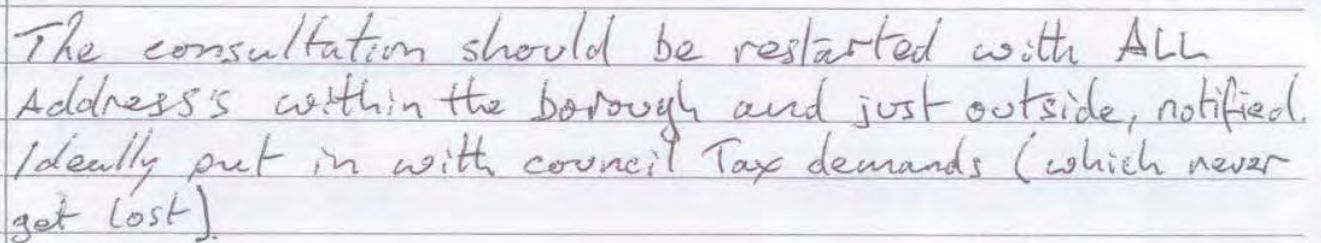 The consultation should be restarted with ALL
Address's within the borough and just outside, notified.
Ideally put in with council Tax demands (which never
get lost).